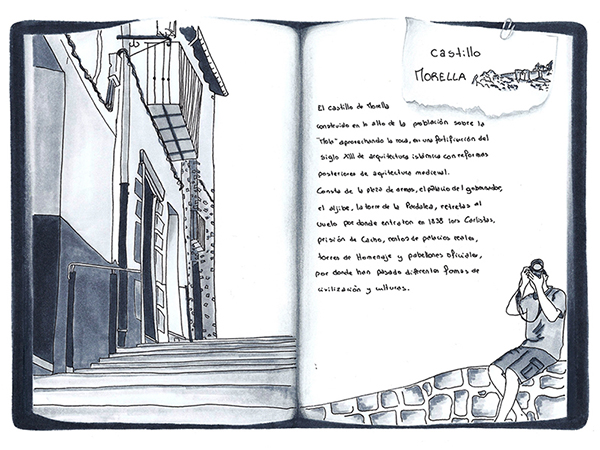 Castillo
MORELLA
El castillo de Morella
construido en lo alto de la población sobre la
"Mola" aprovechando la roca, en una fortificación del
siglo XIII de arquitectura islámica con reformas
posteriores de arquitectura medieval.
Consta de la plaza de armas, el palacio del gobernador,
el aljibe, la torre de la Pardalea, retretas al
vuelo por donde entraton en 1838 los Carlistas,
prisión de Cacho, restos de palacios reales,
torres de Homenaje y pabellones oficiales,
por donde han pasado diferentes formas de
civilización y culturas.